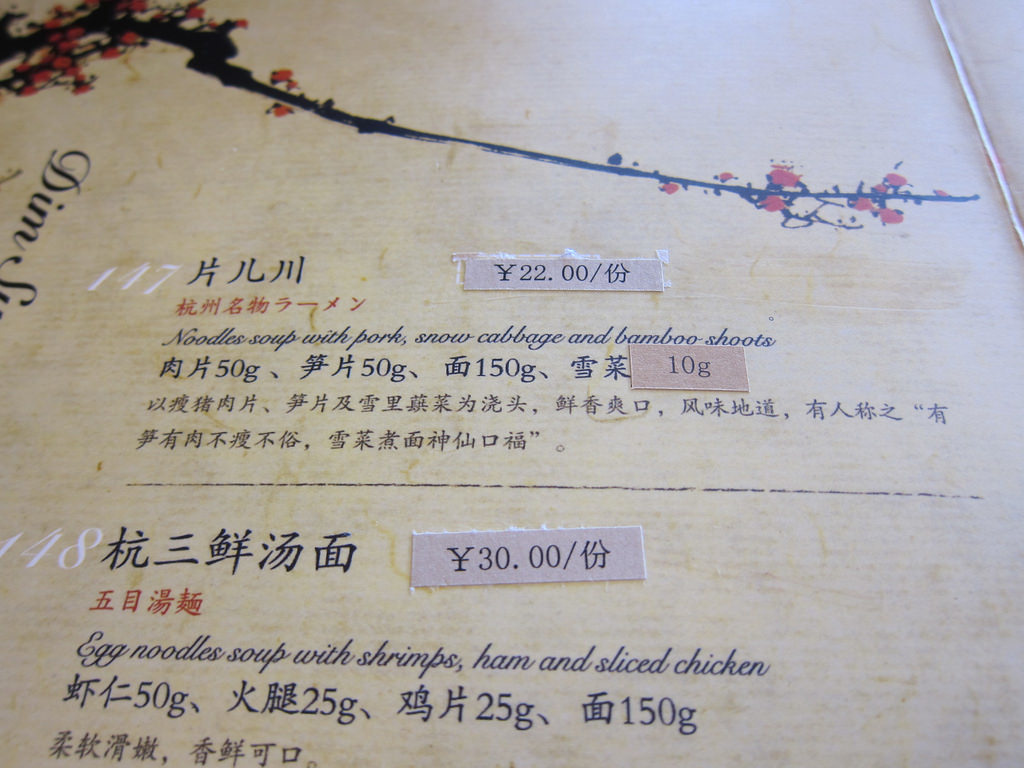 Dim
147 片儿川 ¥22.00/份
杭州名物ラーメン
Noodles soup with pork, snow cabbage and bamboo shoots
肉片50g、笋片50g、面150g、雪菜10g
以瘦猪肉片、笋片及雪里蕻菜为浇头，鲜香爽口，风味地道，有人称之“有
笋有肉不瘦不俗，雪菜煮面神仙口福”。
148 杭三鲜汤面 ¥30.00/份
五目湯麺
Egg noodles soup with shrimps, ham and sliced chicken
虾仁50g、火腿25g、鸡片25g、面150g
柔软滑嫩，香鲜可口。